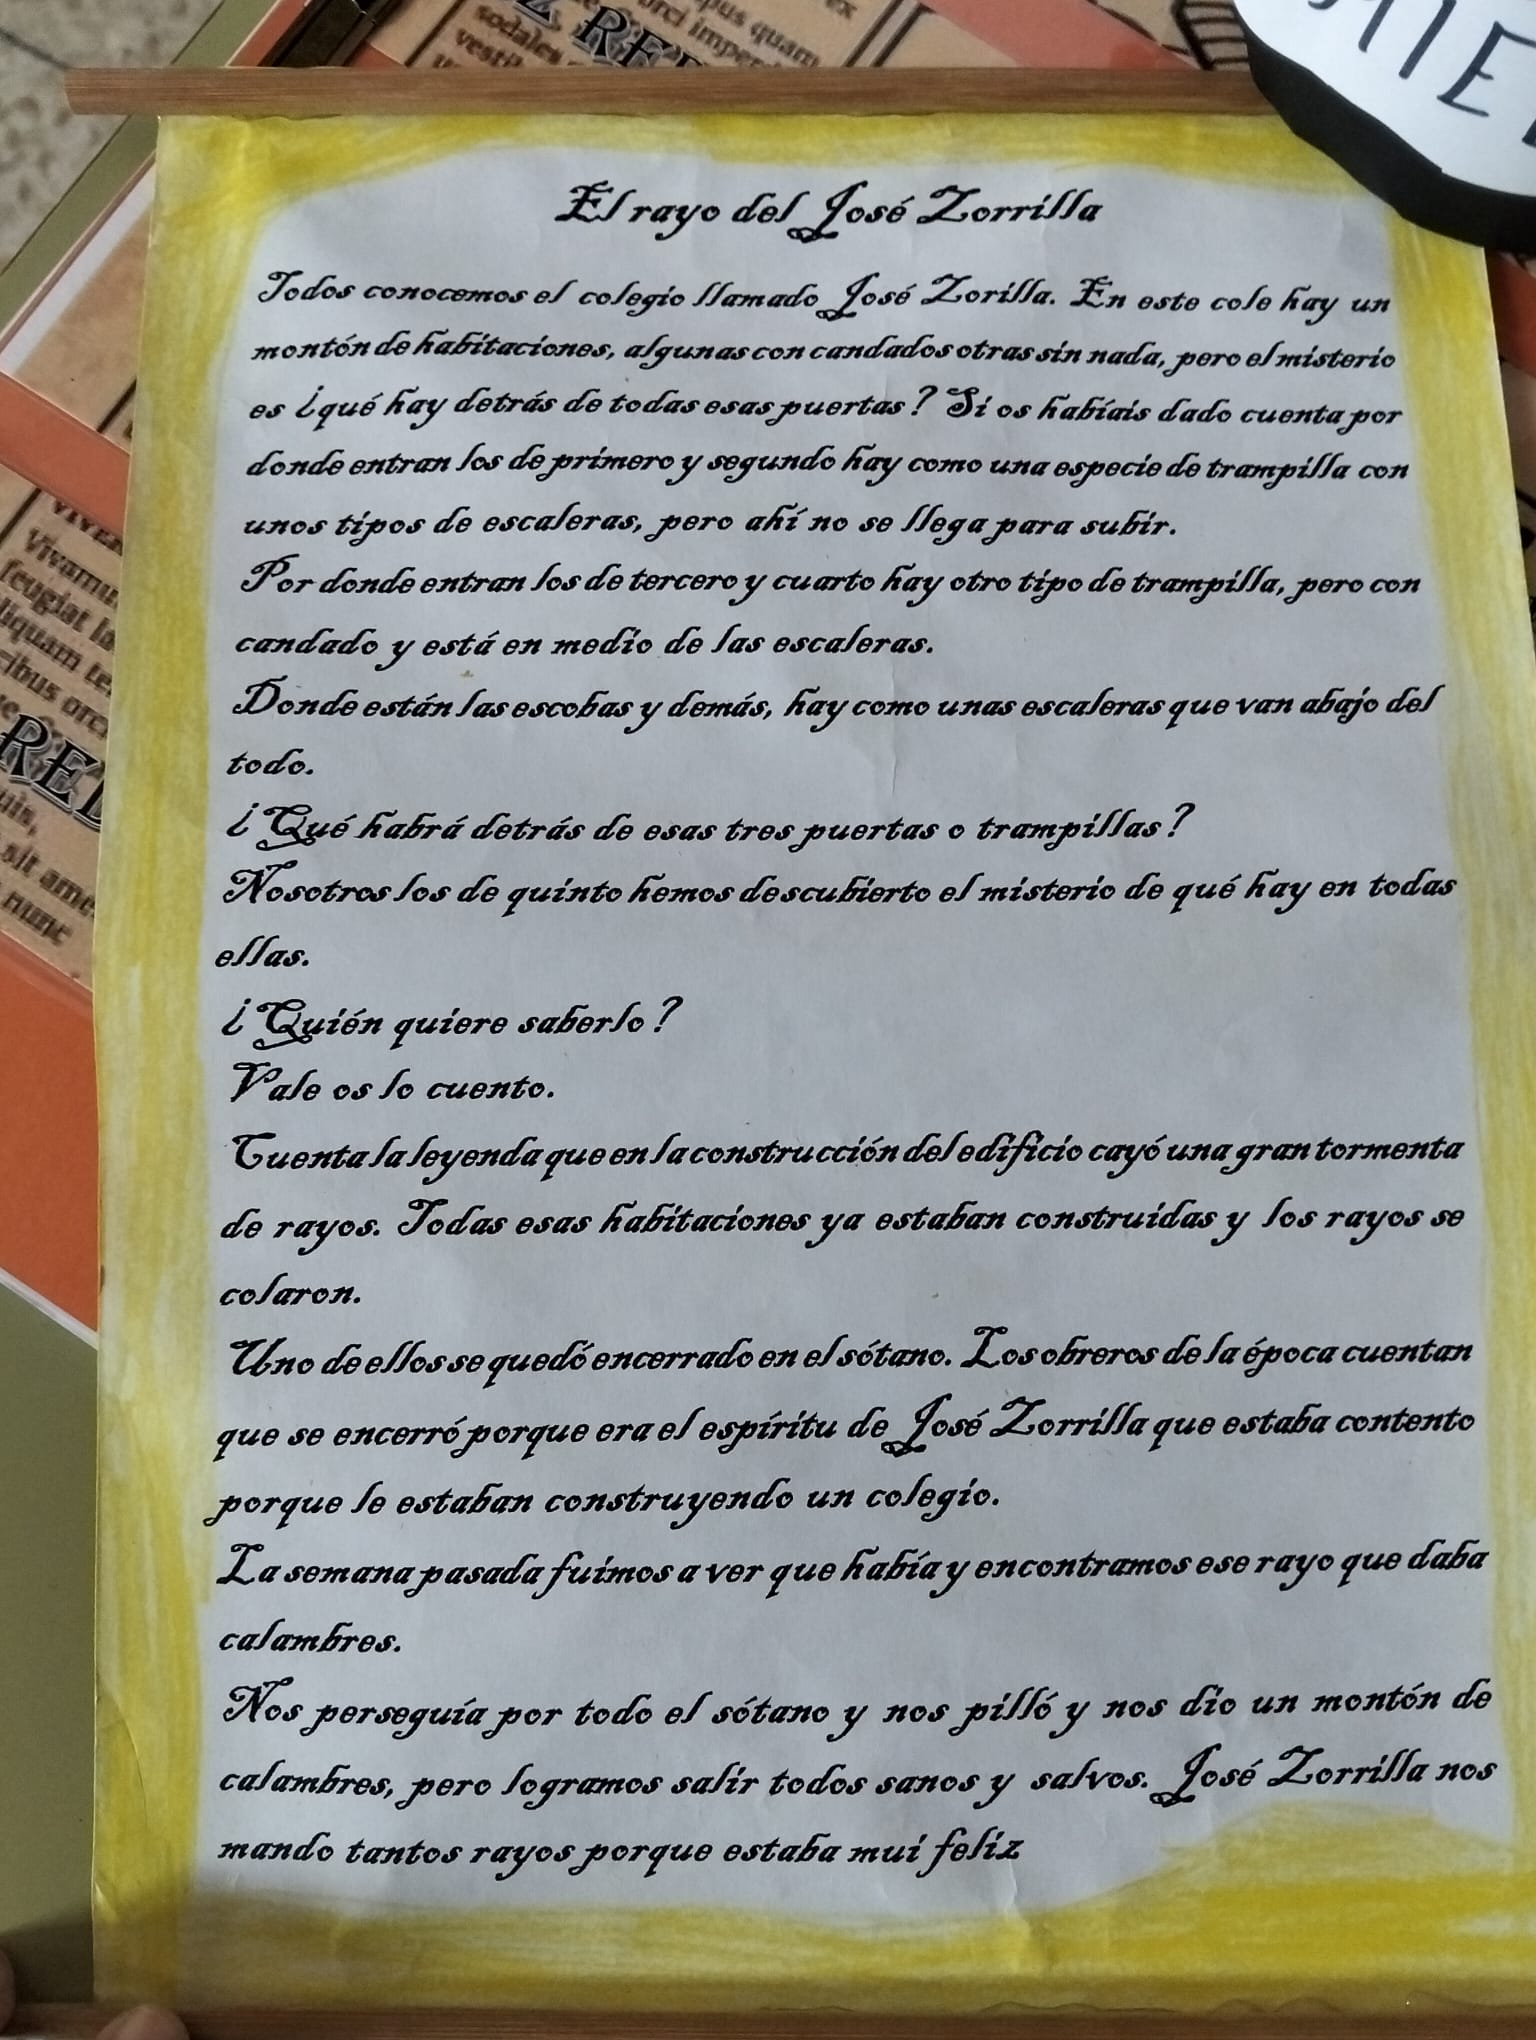 El rayo del José Zorrilla
Todos conocemos el colegio llamado José Zorilla. En este cole hay un
montón de habitaciones, algunas con candados otras sin nada, pero el misterio
es ¿qué hay detrás de todas esas puertas? Si os habíais dado cuenta por
donde entran los de primero y segundo hay como una especie de trampilla con
unos tipos de escaleras, pero ahí no se llega para subir.
Por donde entran los de tercero y cuarto hay otro tipo de trampilla, pero con
candado y está en medio de las escaleras.
Donde están las escobas y demás, hay como unas escaleras que van abajo del
todo.
¿Qué habrá detrás de esas tres puertas o trampillas?
Nosotros los de quinto hemos descubierto el misterio de qué hay en todas
ellas.
¿Quién quiere saberlo?
Vale os lo cuento.
Cuenta la leyenda que en la construcción del edificio cayó una gran tormenta
de rayos. Todas esas habitaciones ya estaban construidas y los rayos se
colaron.
Uno de ellos se quedó encerrado en el sótano. Los obreros de la época cuentan
que se encerró porque era el espíritu de José Zorrilla que estaba contento
porque le estaban construyendo un colegio.
La semana pasada fuimos a ver que había y encontramos ese rayo que daba
calambres.
Nos perseguía por todo el sótano y nos pilló y nos dio un montón de
calambres, pero logramos salir todos sanos y salvos. José Zorrilla nos
mando tantos rayos porque estaba mui feliz
sodales
orci
quam
ex
RED
Vivamus
feugiat
RED
sit ame
nunc